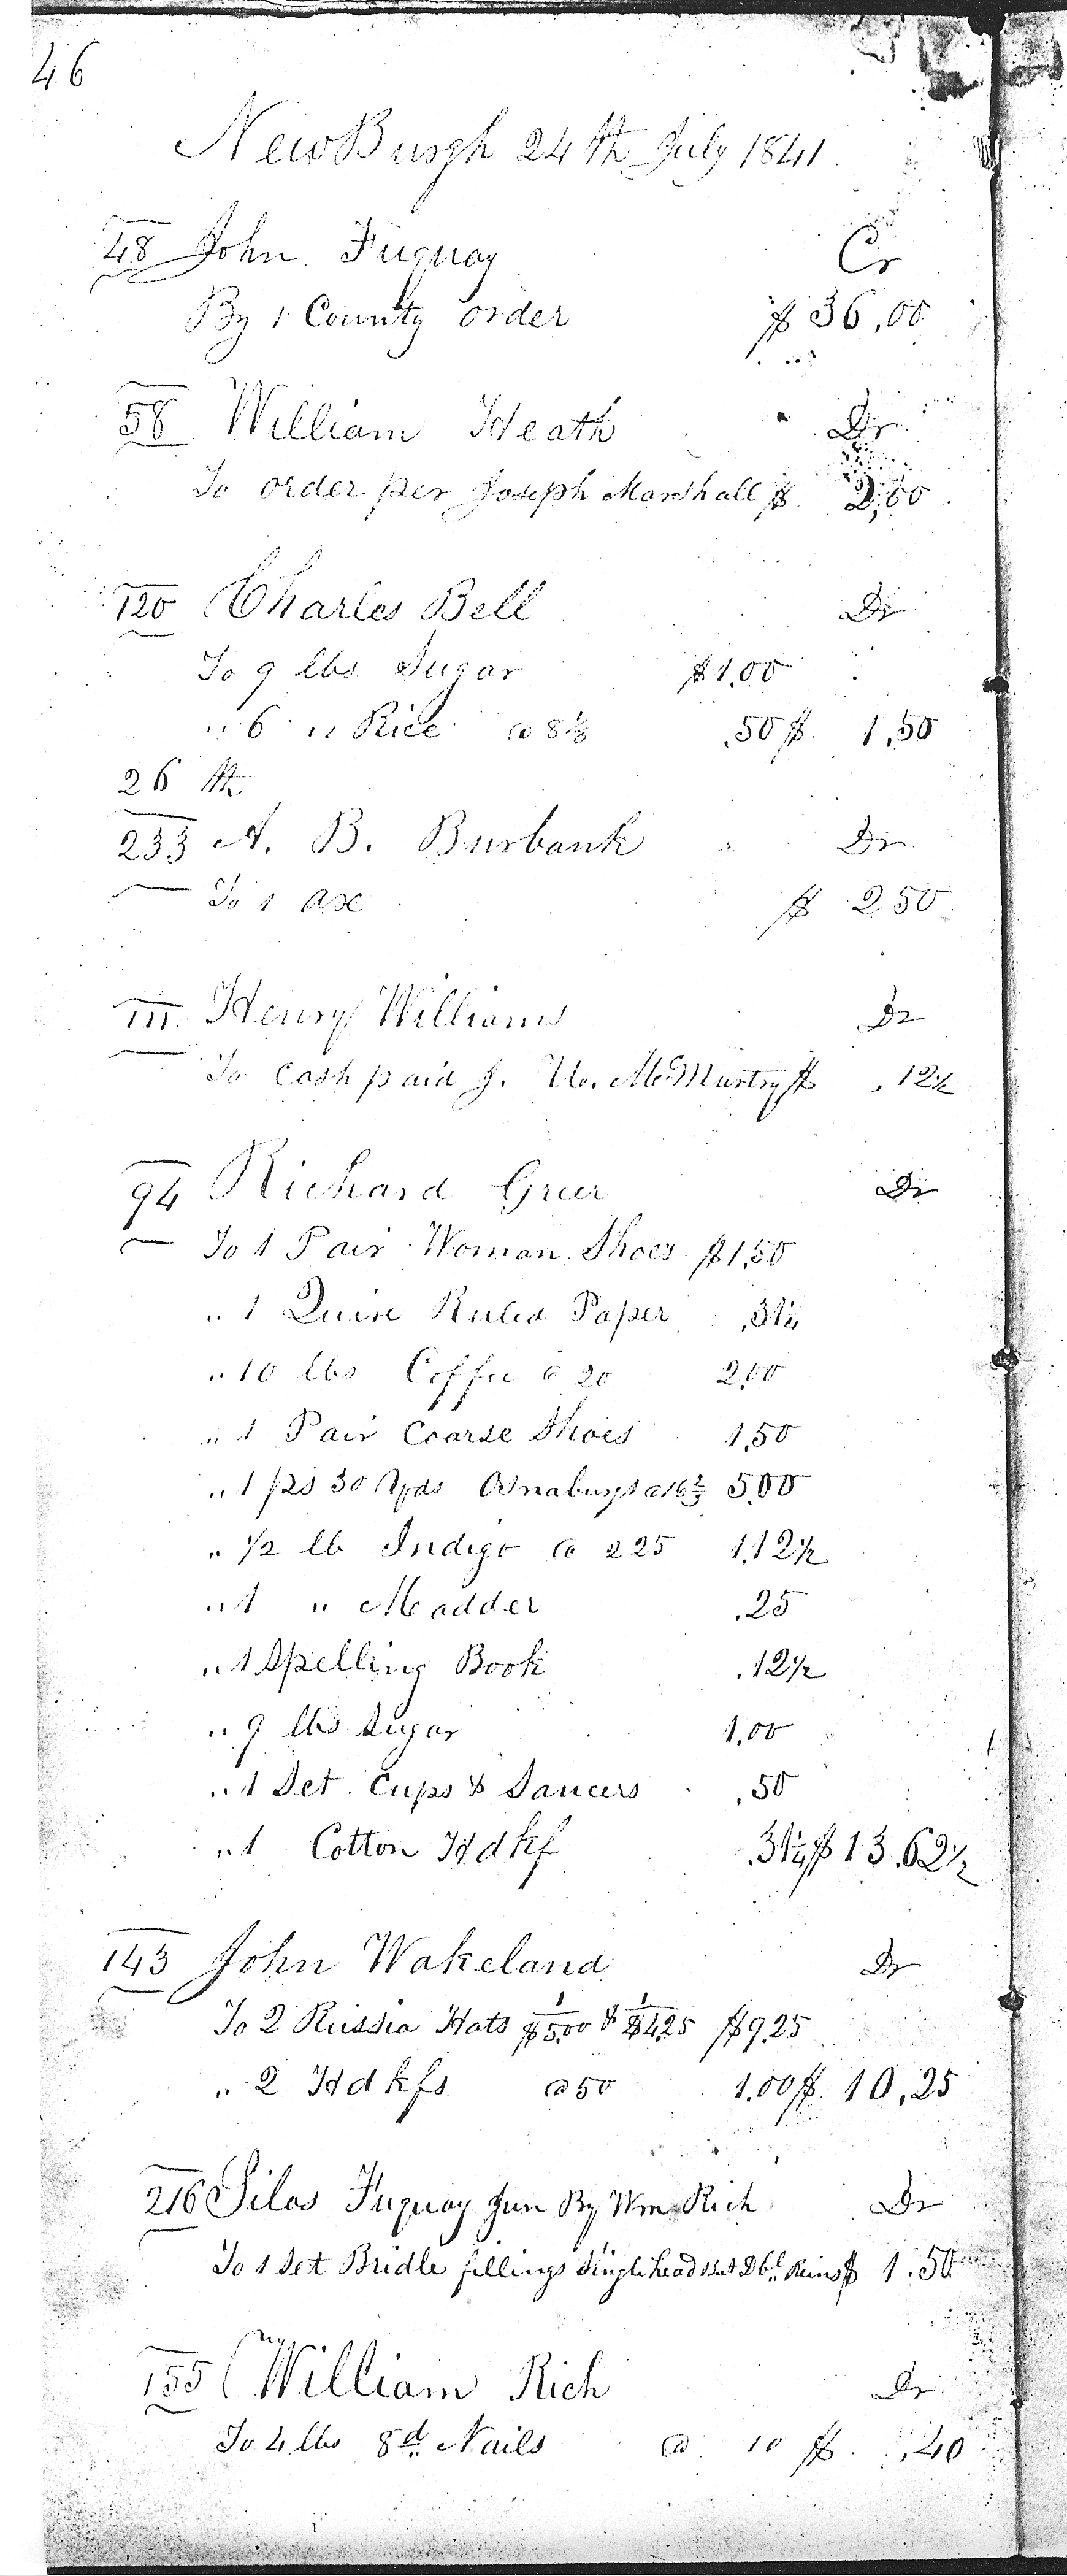 46
NewBurgh 24th July 1841
48 John Fuquay Cr
By 1 County order $ 36,00
58 William Heath Dr
To order per Joseph Marshall $ 2,00
120 Charles Bell Dr
To 9 lbs Sugar $1,00
" 6 " Rice @ 8⅓ .50 $ 1,50
26 th
233 A. B. Burbank Dr
To 1 axe $ 2 50
111 Henry Williams Dr
To Cash paid J. W. McMurtry $ ,12½
94 Richard Greer Dr
To 1 Pair Woman Shoes $1,50
" 1 Quire Ruled Paper ,31¼
" 10 lbs Coffee @ 20 2,00
" 1 Pair Coarse Shoes 1,50
" 1 ps 30 Yds Osnaburgs @ 16⅔ 5,00
" ½ lb Indigo @ 225 1,12½
" 1 " Madder .25
" 1 Spelling Book .12½
" 9 lbs Sugar 1.00
" 1 Set Cups & Saucers ,50
" 1 Cotton Hdkf .31¼ $ 13.62½
143 John Wakeland Dr
To 2 Russia Hats 1/$5.00 & 1/$4.25 $9.25
" 2 Hdkfs @ 50 1.00 $ 10,25
216 Silas Fuquay Jun By Wm Rich Dr
To 1 Set Bridle fillings Single head But Dbl Reins $ 1.50
155 William Rich Dr
To 4 lbs 8d Nails @ 10 $ ,40